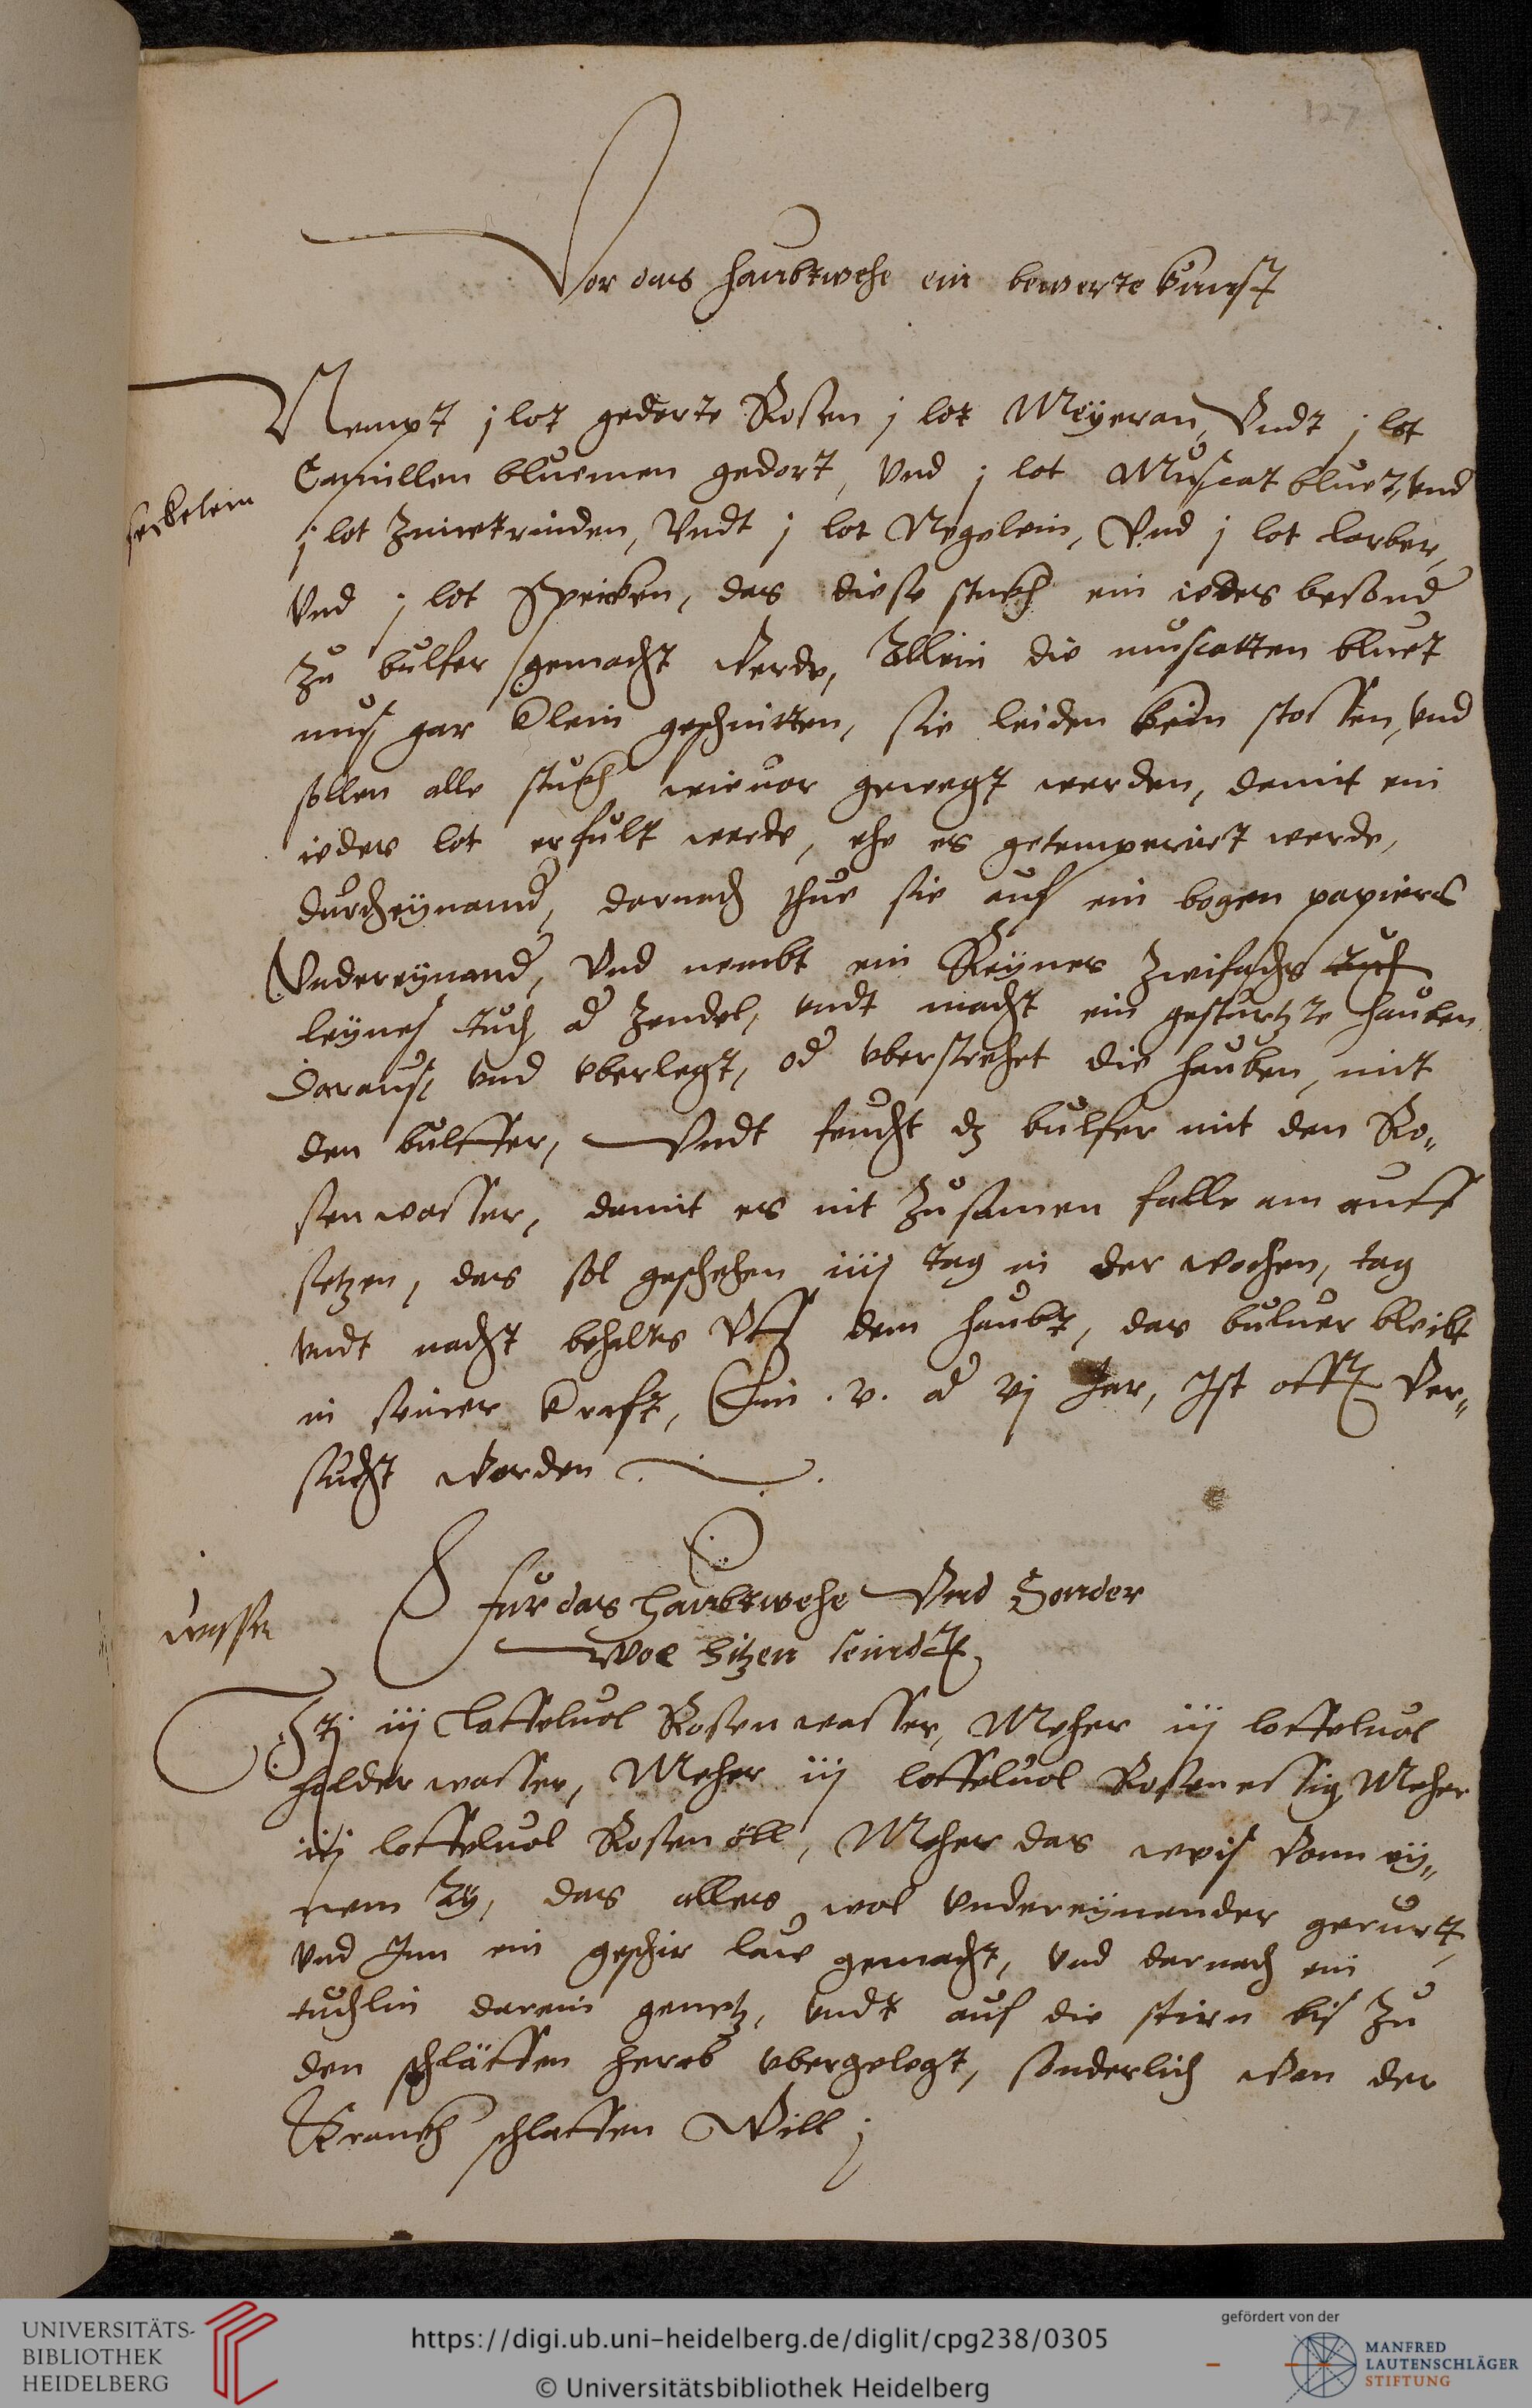 127
Vor das haubtwehe ein bewerte kunst
Nempt j lot gedorte Rosen j lot Meyeran, Vndt j lot
Camillen bluemen gedort, vnd j lot Muscat bluet, vnd
seckelein
j lot Zimetrinden, Vndt j lot Negelein, Vnd j lot lorber,
Vnd j lot Speicken, das diese stukh ein iedes besond
zu bulfer gemacht werde, Allein die muscatten bluet
mus gar klein geschnitten, sie leiden kein stossen, vnd
sollen alle stukh wieuor gewegt werden, damit ein
iedes lot erfult werde, ehe es getemperiert werde,
durcheynand, darnach thue sie auf ein bogen papiers
Vndereynand, Vnd nembt ein Reynes zwifachs tuch
leynes tuch od zendel, vndt macht ein gesturtzte hauben
daraus, vnd vberlegt, od vberstrehet die hauben, mit
den bulffer, Vndt feucht dz bulfer mit den Ro„
senwasser, damit es nit zusamen falle am auff
setzen, das sol geschehen iiij tag in der wochen, tag
vndt nacht behalts Vff dem haubt, das buluer bleibt
in seiner krafft, Ein .v. od vj Jar, Ist offt Ver„
sucht worden
wasser
Fur das haubtwehe Vnd Sonder
Wol hitzen seindt
iij Loffeluol Rosenwasser, Meher iij loffeluol
holder wasser, Meher iij loffeluol Rosenessig Meher
iij loffeluol Rosenöll, Meher das weis vonn ey„
nem Ay, das alles wol Vndereynander gerurtt,
vnd Inn ein geschir law gemacht, vnd darnach ein
tuchlin darein genetz, vndt auf die stirn bis zu
den schläffen herab vbergelegt, sonderlich wan der
Krankh schlaffen Will
UNIVERSITÄTS-
BIBLIOTHEK
HEIDELBERG
https://digi.ub.uni-heidelberg.de/diglit/cpg238/0305
© Universitätsbibliothek Heidelberg
gefördert von der
MANFRED
LAUTENSCHLÄGER
STIFTUNG